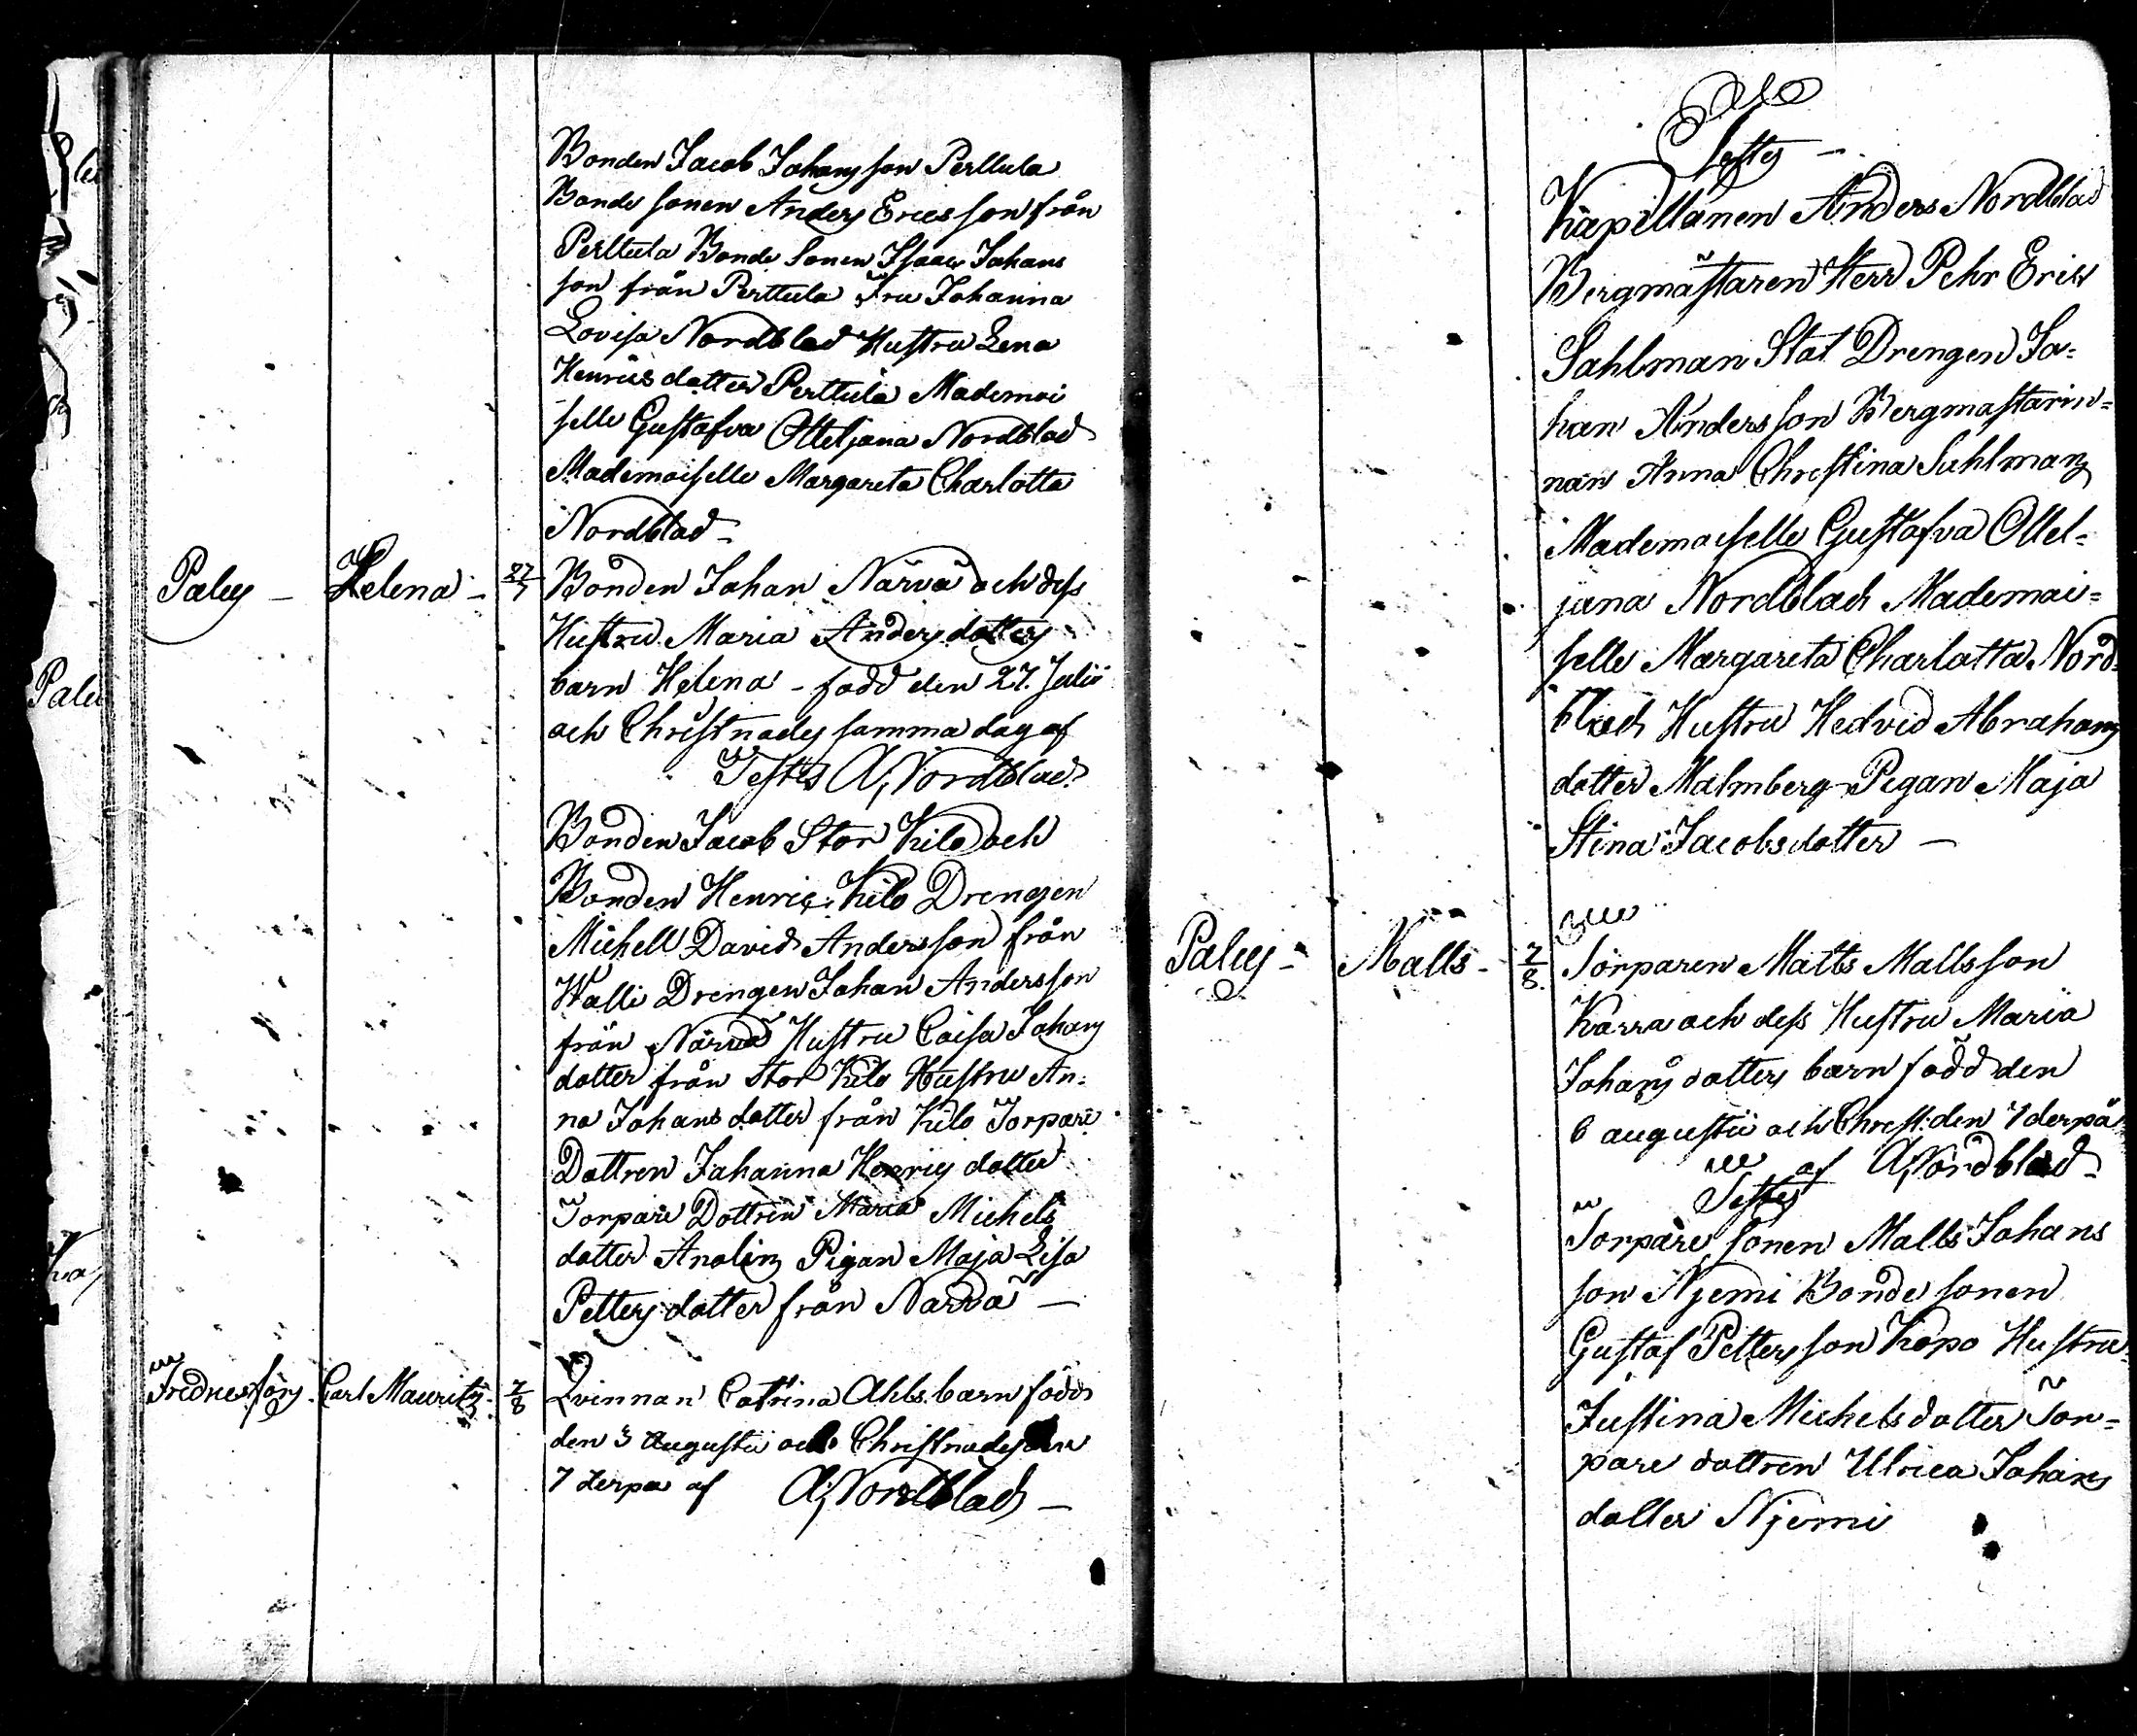 Bonden Jacob Johansson Perttula
Bonde sonen Anders Ericsson från
Perttula Bonde Sonen Isaac Johans
son från Perttula Fru Johanna
Lovisa Nordblad Hustru Lena
Henricsdotter Perttula Mademoi
selle Gustafva Otteljana Nordblad
Mademoiselle Margareta Charlotta
Nordblad -
Palus - Helena - 27/7 Bonden Johan Närvä och dess
Hustru Maria Andersdotters
barn Helena - född den 27. Julii
och Christnades samma dag af
Testes A, Nordblad
Bonden Jacob Stor Kilo och
Bonden Henric Kilo Drengen
Michell David Andersson från
Walli Drengen Johan Andersson
från Närvä Hustru Caisa Johans
dotter från Stor Kilo Hustru An-
na Johansdotter från Kilo Torpare
Dottren Johanna Henrics dotter
Torpare Dottren Maria Michels
dotter Analin Pigan Maja Lisa
Petters dotter från Narvä -
Fredriksfors Carl Mauritz 7/8 Qvinnan Catrina Ahls barn född
den 3 Augustii och Christnades den
7 derpa af A, Nordblad -
Testes -
Kapellanen Anders Nordblad
Bergmästaren Herr Pehr Eric
Sahlman Stat Drengen Jo-
han Andersson Bergmastarin-
nan Anna Christina Sahlman
Mademoiselle Gustafva Ottel-
jana Nordblad Mademoi-
selle Margareta Charlotta Nord-
blad Hustru Hedvid Abrahams
dotter Malmberg Pigan Maja
Stina Jacobsdotter -
Palus - Matts - 7/8. Torparen Matts Mattsson
Karra och dess Hustru Maria
Johans dotters barn född den
6 augustii och Christ: den 7 derpå
af A, Nordblad -
Testes
Torpare sonen Matts Johans
son Njemi Bonde sonen
Gustaf Pettersson Kopo Hustru
Justina Michelsdotter Tor-
pare dottren Ulrica Johans
dotter Njemi